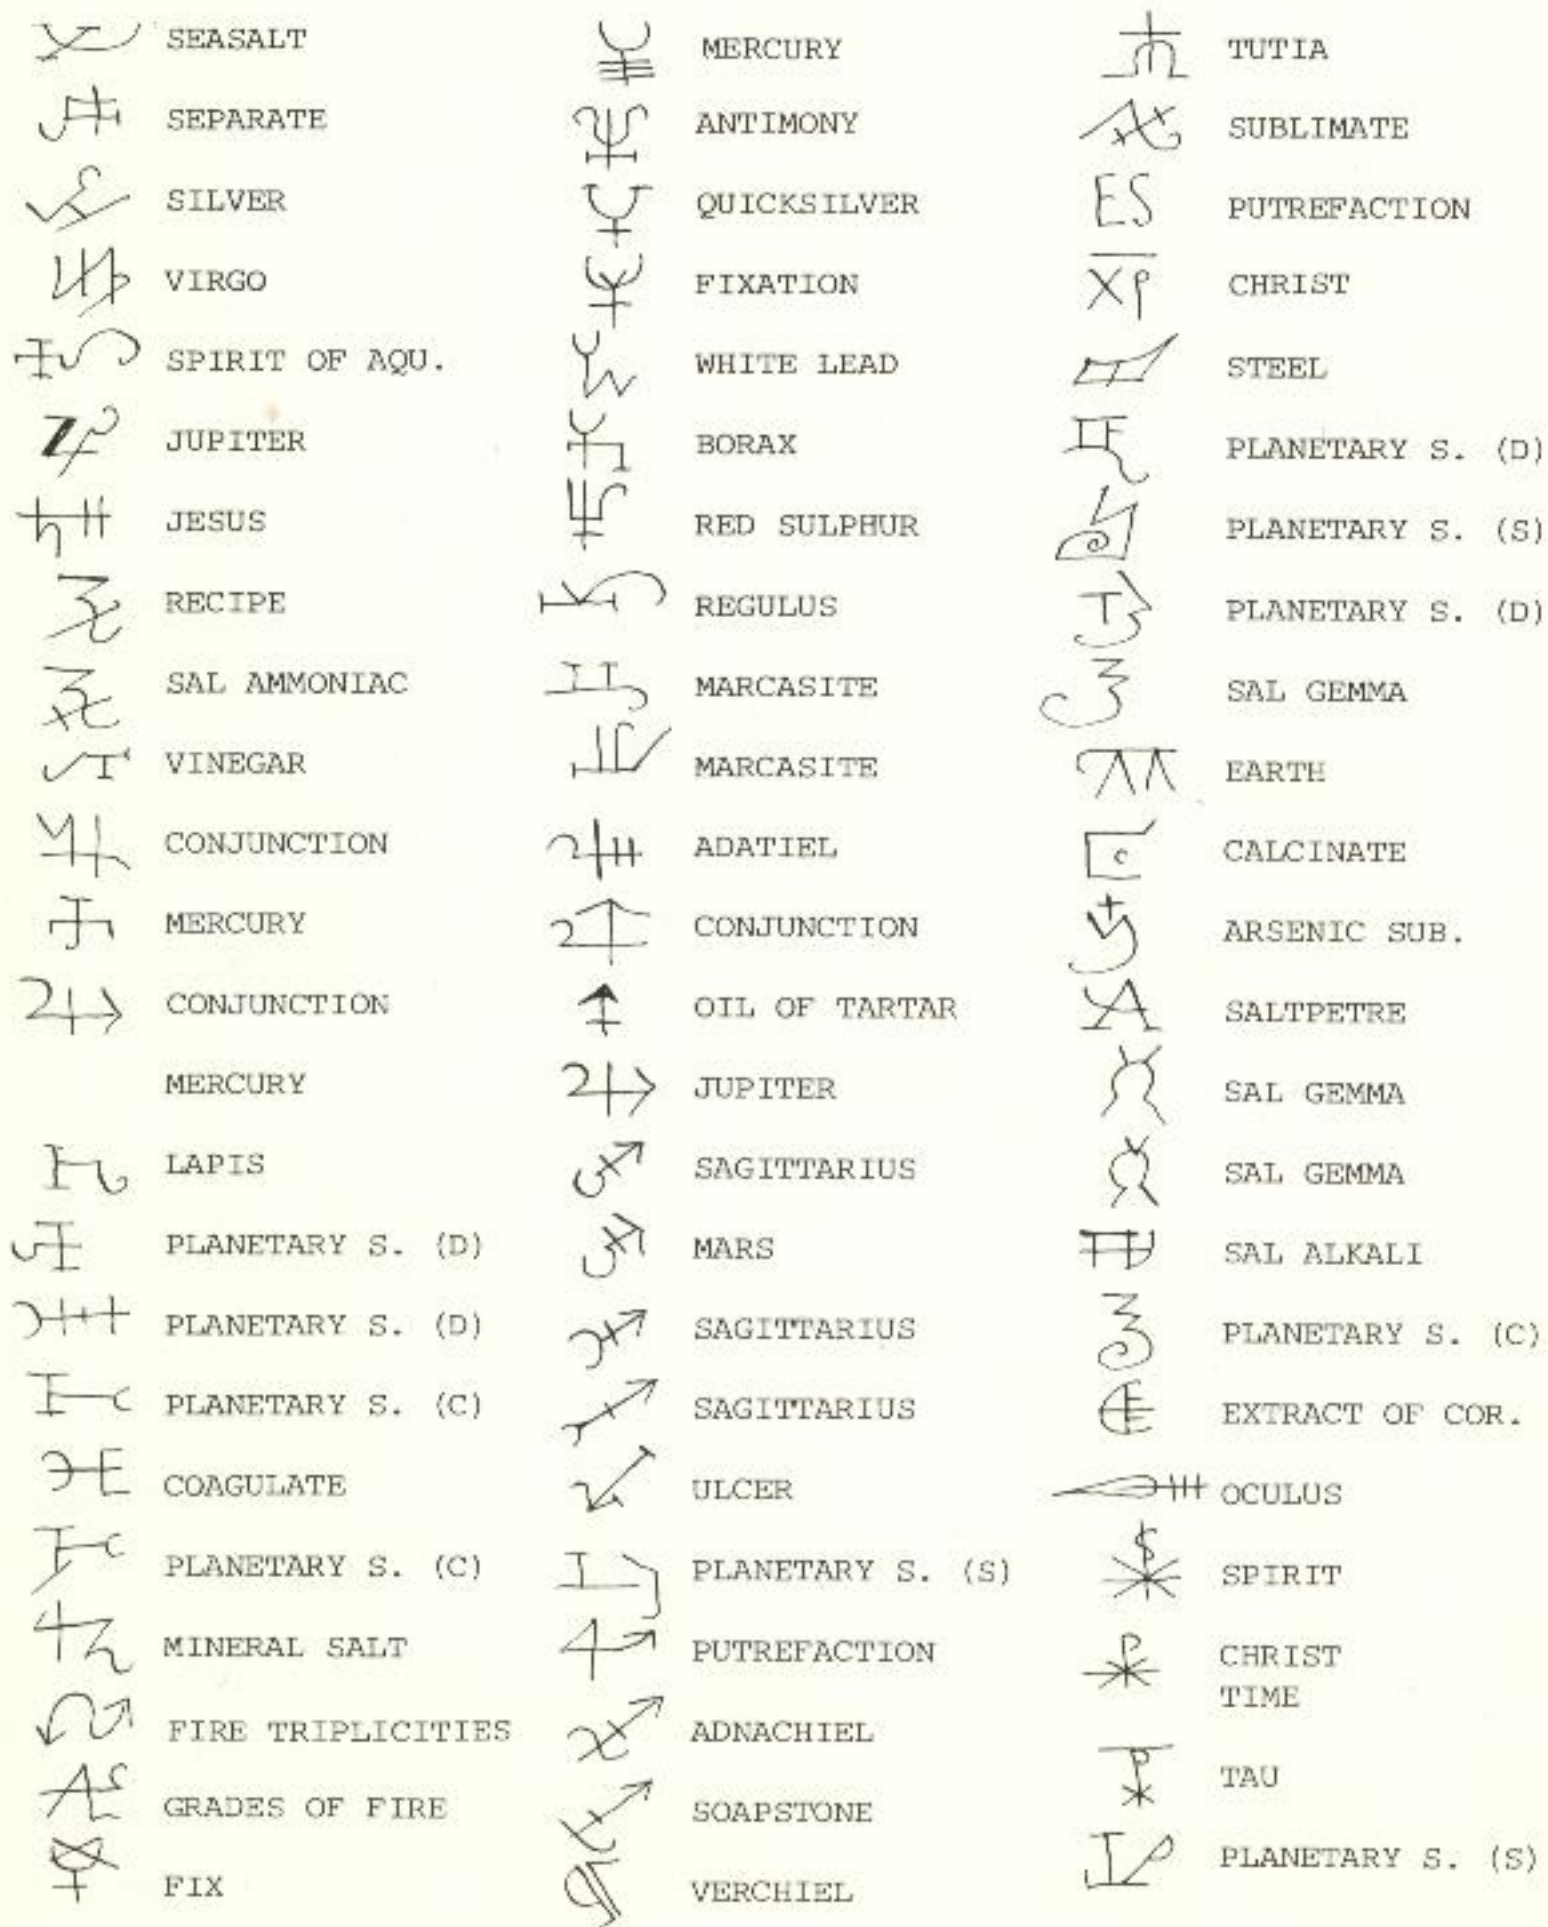 SEASALT
SEPARATE
SILVER
VIRGO
SPIRIT OF AQU.
JUPITER
JESUS
RECIPE
SAL AMMONIAC
VINEGAR
CONJUNCTION
MERCURY
CONJUNCTION
MERCURY
LAPIS
PLANETARY S. (D)
PLANETARY S. (D)
PLANETARY S. (C)
COAGULATE
PLANETARY S. (C)
MINERAL SALT
FIRE TRIPLICITIES
GRADES OF FIRE
FIX
MERCURY
ANTIMONY
QUICKSILVER
FIXATION
WHITE LEAD
BORAX
RED SULPHUR
REGULUS
MARCASITE
MARCASITE
ADATIEL
CONJUNCTION
OIL OF TARTAR
JUPITER
SAGITTARIUS
MARS
SAGITTARIUS
SAGITTARIUS
ULCER
PLANETARY S. (S)
PUTREFACTION
ADNACHIEL
SOAPSTONE
VERCHIEL
TUTIA
SUBLIMATE
ES PUTREFACTION
CHRIST
STEEL
PLANETARY S. (D)
PLANETARY S. (S)
PLANETARY S. (D)
SAL GEMMA
EARTH
CALCINATE
ARSENIC SUB.
SALTPETRE
SAL GEMMA
SAL GEMMA
SAL ALKALI
PLANETARY S. (C)
EXTRACT OF COR.
OCULUS
SPIRIT
CHRIST
TIME
TAU
PLANETARY S. (S)